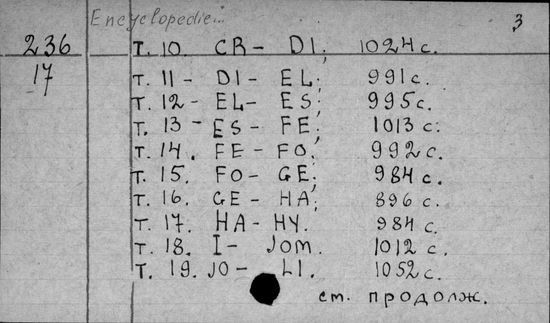 Encyclopedie... 3
236 т. 10. CR - DI; 1024 с.
17 т. 11 - DI - EL; 991 с.
т. 12 - EL - ES; 995 с.
т. 13 - ES - FE; 1013 с.
т. 14. FE - FO; 992 с.
т. 15. FO - GE; 984 с.
т. 16. GE - HA; 896 с.
т. 17. HA - HY. 984 с.
т. 18. I - JOM. 1012 с.
т. 19. JO - LI. 1052 с.
см. продолж.